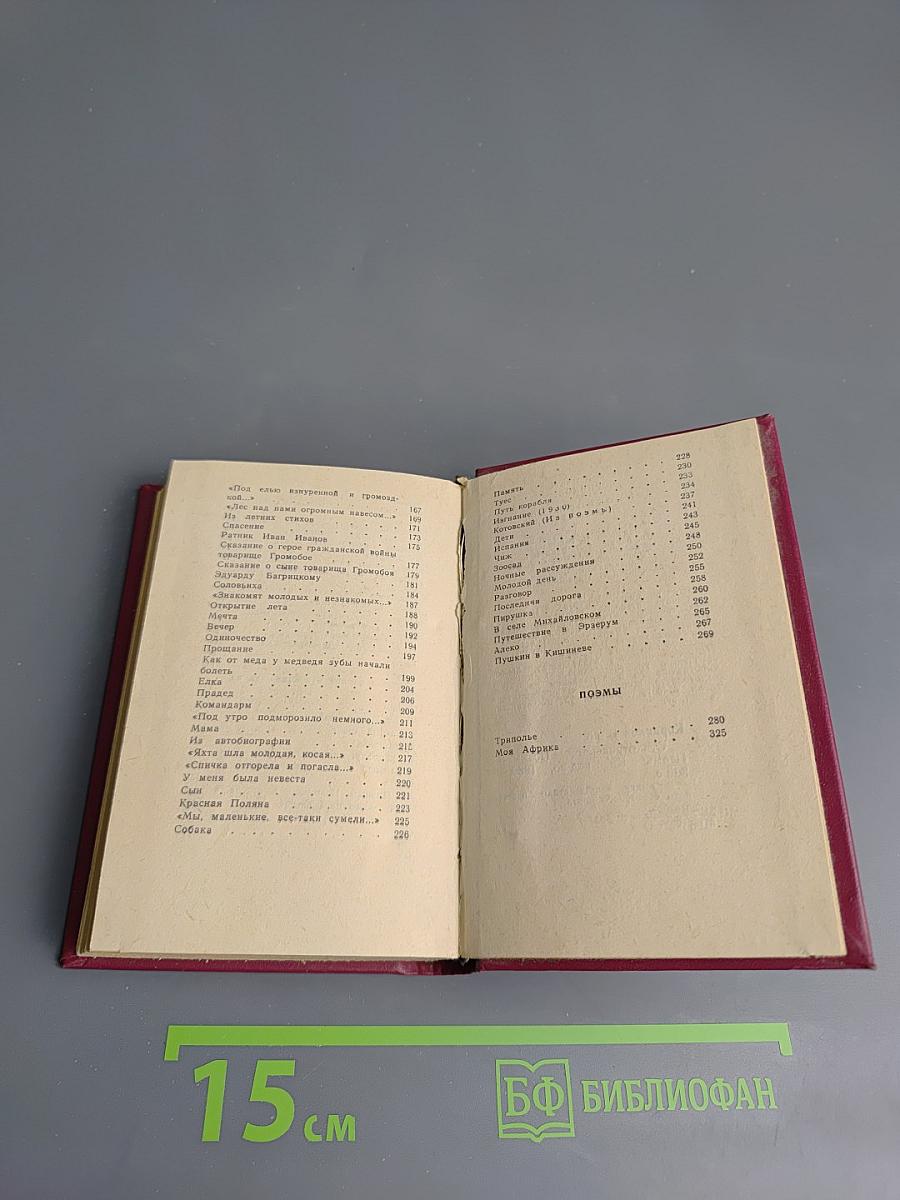 «Под елью изнуренной и громозд-
кой...» . . . . . . . . 167
«Лес над нами огромным навесом...» 169
Из летних стихов . . . . . . 171
Спасение . . . . . . . . 173
Ратник Иван Иванов . . . . . 175
Сказание о герое гражданской войны
товарище Громобое . . . . . 177
Сказание о сыне товарища Громобоя 179
Эдуарду Багрицкому . . . . . 181
Соловьиха . . . . . . . . 184
«Знакомят молодых и незнакомых...» 187
Открытие лета . . . . . . . 188
Мечта . . . . . . . . . 190
Вечер . . . . . . . . . 192
Одиночество . . . . . . . 194
Прощание . . . . . . . . 197
Как от меда у медведя зубы начали
болеть . . . . . . . . . 199
Елка . . . . . . . . . 204
Прадед . . . . . . . . . 206
Командарм . . . . . . . . 209
«Под утро подморозило немного...» 211
Мама . . . . . . . . . 213
Из автобиографии . . . . . . 215
«Яхта шла молодая, косая...» . . 217
«Спичка отгорела и погасла...» . 219
У меня была невеста . . . . . 220
Сын . . . . . . . . . . 221
Красная Поляна . . . . . . 223
«Мы, маленькие, все-таки сумели...» 225
Собака . . . . . . . . . 226
Память . . . . . . . . . 228
Туес . . . . . . . . . 230
Путь корабля . . . . . . . 233
Изгнание (1930) . . . . . . 234
Котовский (Из поэмы) . . . . 237
Дети . . . . . . . . . 241
Испания . . . . . . . . 243
Чиж . . . . . . . . . 245
Зоосад . . . . . . . . . 248
Ночные рассуждения . . . . . 250
Молодой день . . . . . . . 252
Разговор . . . . . . . . 255
Последняя дорога . . . . . . 258
Пирушка . . . . . . . . 260
В селе Михайловском . . . . . 262
Путешествие в Эрзерум . . . . 265
Алеко . . . . . . . . . 267
Пушкин в Кишиневе . . . . . 269
ПОЭМЫ
Триполье . . . . . . . . 280
Моя Африка . . . . . . . 325
15 см
БФ БИБЛИОФАН